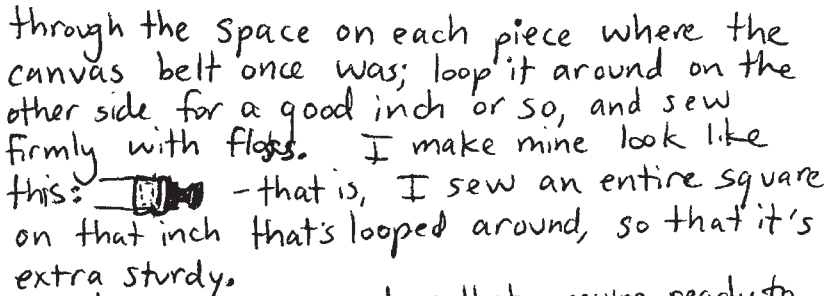 through the space on each piece where the
canvas belt once was; loop it around on the
other side for a good inch or so, and sew
firmly with floss. I make mine look like
this: - that is, I sew an entire square
on that inch that's looped around, so that it's
extra sturdy.